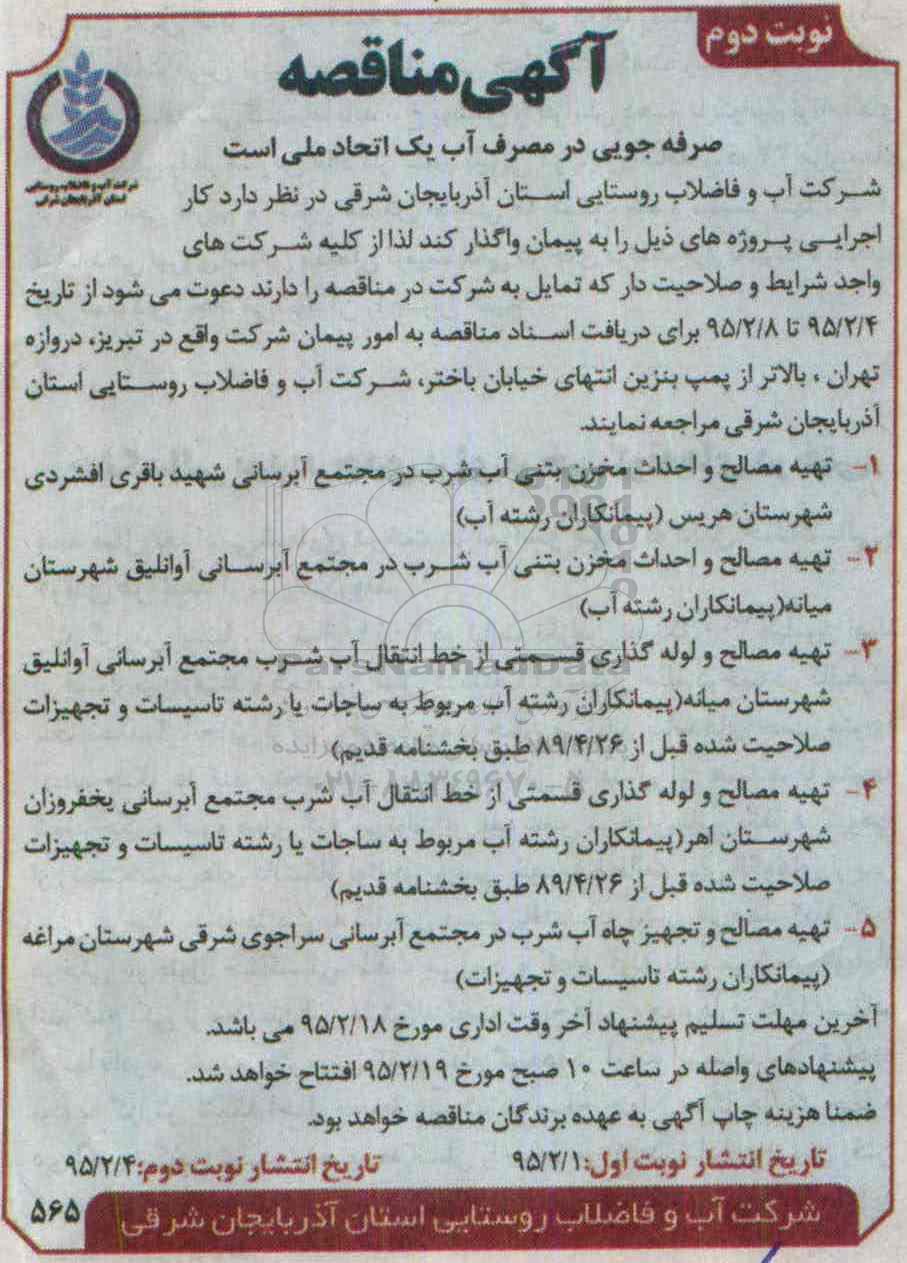 نوبت دوم
آگهی مناقصه
شرکت آب و فاضلاب روستایی
استان آذربایجان شرقی
صرفه جویی در مصرف آب یک اتحاد ملی است
شرکت آب و فاضلاب روستایی استان آذربایجان شرقی در نظر دارد کار
اجرایی پروژه های ذیل را به پیمان واگذار کند لذا از کلیه شرکت های
واجد شرایط و صلاحیت دار که تمایل به شرکت در مناقصه را دارند دعوت می شود از تاریخ
۹۵/۲/۴ تا ۹۵/۲/۸ برای دریافت اسناد مناقصه به امور پیمان شرکت واقع در تبریز، دروازه
تهران ، بالاتر از پمپ بنزین انتهای خیابان باختر، شرکت آب و فاضلاب روستایی استان
آذربایجان شرقی مراجعه نمایند.
۱- تهیه مصالح و احداث مخزن بتنی آب شرب در مجتمع آبرسانی شهید باقری افشردی
شهرستان هریس (پیمانکاران رشته آب)
۲- تهیه مصالح و احداث مخزن بتنی آب شرب در مجتمع آبرسانی آوانلیق شهرستان
میانه(پیمانکاران رشته آب)
۳- تهیه مصالح و لوله گذاری قسمتی از خط انتقال آب شرب مجتمع آبرسانی آوانلیق
ParsNamadData
شهرستان میانه(پیمانکاران رشته آب مربوط به ساجات یا رشته تاسیسات و تجهیزات
صلاحیت شده قبل از ۸۹/۴/۲۶ طبق بخشنامه قدیم)
۴- تهیه مصالح و لوله گذاری قسمتی از خط انتقال آب شرب مجتمع آبرسانی یخفروزان
شهرستان اهر(پیمانکاران رشته آب مربوط به ساجات یا رشته تاسیسات و تجهیزات
صلاحیت شده قبل از ۸۹/۴/۲۶ طبق بخشنامه قدیم)
۵- تهیه مصالح و تجهیز چاه آب شرب در مجتمع آبرسانی سراجوی شرقی شهرستان مراغه
(پیمانکاران رشته تاسیسات و تجهیزات)
آخرین مهلت تسلیم پیشنهاد آخر وقت اداری مورخ ۹۵/۲/۱۸ می باشد.
پیشنهادهای واصله در ساعت ۱۰ صبح مورخ ۹۵/۲/۱۹ افتتاح خواهد شد.
ضمنا هزینه چاپ آگهی به عهده برندگان مناقصه خواهد بود.
تاریخ انتشار نوبت اول:۹۵/۲/۱ تاریخ انتشار نوبت دوم:۹۵/۲/۴
شرکت آب و فاضلاب روستایی استان آذربایجان شرقی
۵۶۵